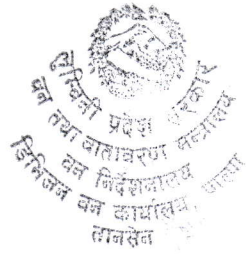 लुम्बिनी प्रदेश सरकार
वन तथा वातावरण मन्त्रालय
वन निर्देशनालय
डिभिजन वन कार्यालय, पाल्पा
तानसेन